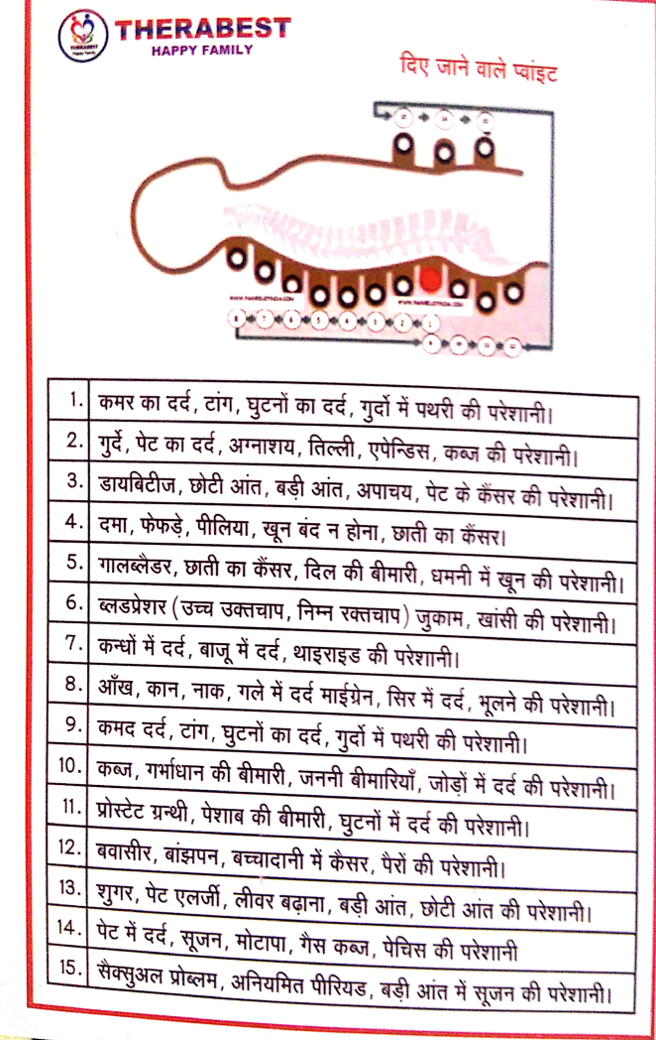 THERABEST
HAPPY FAMILY
THERABEST
Happy Family
दिए जाने वाले प्वांइट
13 14 15
8 7 6 5 4 3 2 1
9 10 11 12
1. कमर का दर्द, टांग, घुटनों का दर्द, गुर्दो में पथरी की परेशानी।
2. गुर्दे, पेट का दर्द, अग्नाशय, तिल्ली, एपेन्डिस, कब्ज की परेशानी।
3. डायबिटीज, छोटी आंत, बड़ी आंत, अपाचय, पेट के कैंसर की परेशानी।
4. दमा, फेफड़े, पीलिया, खून बंद न होना, छाती का कैंसर।
5. गालब्लैडर, छाती का कैंसर, दिल की बीमारी, धमनी में खून की परेशानी।
6. ब्लडप्रेशर (उच्च उक्तचाप, निम्न रक्तचाप) जुकाम, खांसी की परेशानी।
7. कन्धों में दर्द, बाजू में दर्द, थाइराइड की परेशानी।
8. आँख, कान, नाक, गले में दर्द माईग्रेन, सिर में दर्द, भूलने की परेशानी।
9. कमद दर्द, टांग, घुटनों का दर्द, गुर्दो में पथरी की परेशानी।
10. कब्ज, गर्भाधान की बीमारी, जननी बीमारियाँ, जोड़ों में दर्द की परेशानी।
11. प्रोस्टेट ग्रन्थी, पेशाब की बीमारी, घुटनों में दर्द की परेशानी।
12. बवासीर, बांझपन, बच्चादानी में कैसर, पैरों की परेशानी।
13. शुगर, पेट एलर्जी, लीवर बढ़ाना, बड़ी आंत, छोटी आंत की परेशानी।
14. पेट में दर्द, सूजन, मोटापा, गैस कब्ज, पेचिस की परेशानी
15. सैक्सुअल प्रोब्लम, अनियमित पीरियड, बड़ी आंत में सूजन की परेशानी।